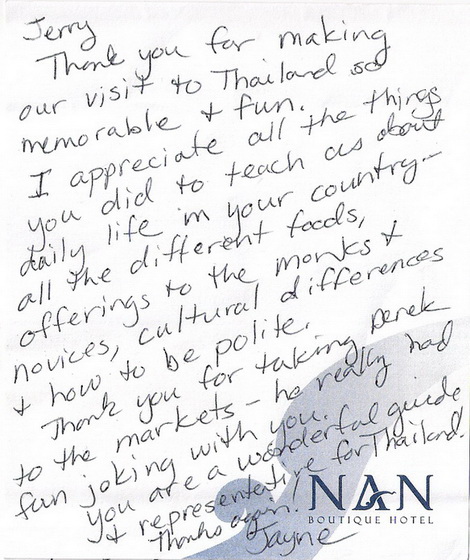 Jerry
Thank you for making
our visit to Thailand so
memorable + fun.
I appreciate all the things
you did to teach us about
daily life in your country—
all the different foods,
offerings to the monks +
novices, cultural differences
+ how to be polite.
Thank you for taking Derek
to the markets – he really had
fun joking with you.
You are a wonderful guide
+ representative for Thailand.
Thanks again!
Jayne
NAN
BOUTIQUE HOTEL